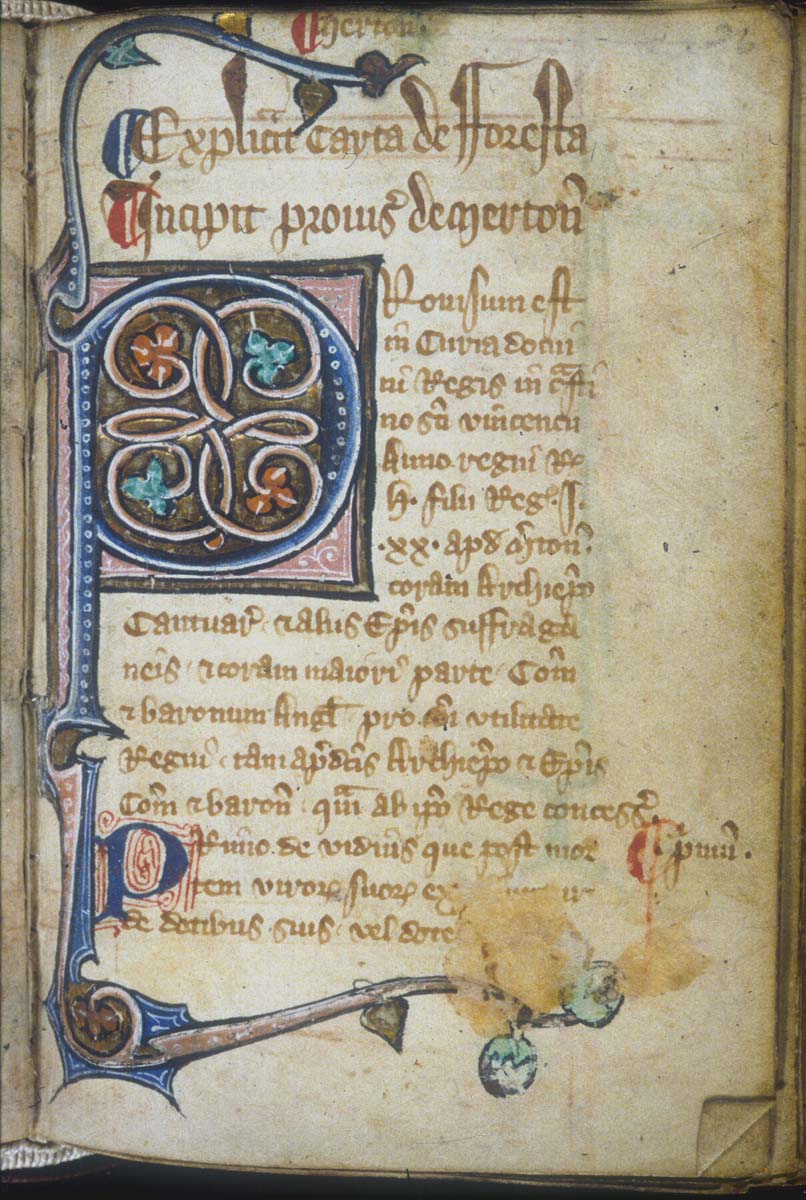 Merton̄.
Explicit Carta de fforesta
Incipit prouis̄ de Merton̄
Rouisum est
in Curia domi
ni Regis in c̄sti
no sc̄i vincencii
Anno regni R̄
H. filii Reḡ. J.
.xx. apd̄ m̄ton̄.
coram Archiep̄o
Cantuar̄. & aliis Ep̄is suffraga
neis. & coram maiori parte. Com̄
& baronum Angl̄. pro com̄i vtilitate
Regni. tam ap̄dc̄is Archiep̄o & Ep̄is
Com̄ & baron̄. qam ab ip̄o Rege concess̄.
PRimo. de viduis que post mor
tem viroꝝ suoꝝ ex
de dotibus. suis. vel dote
p̄mū.